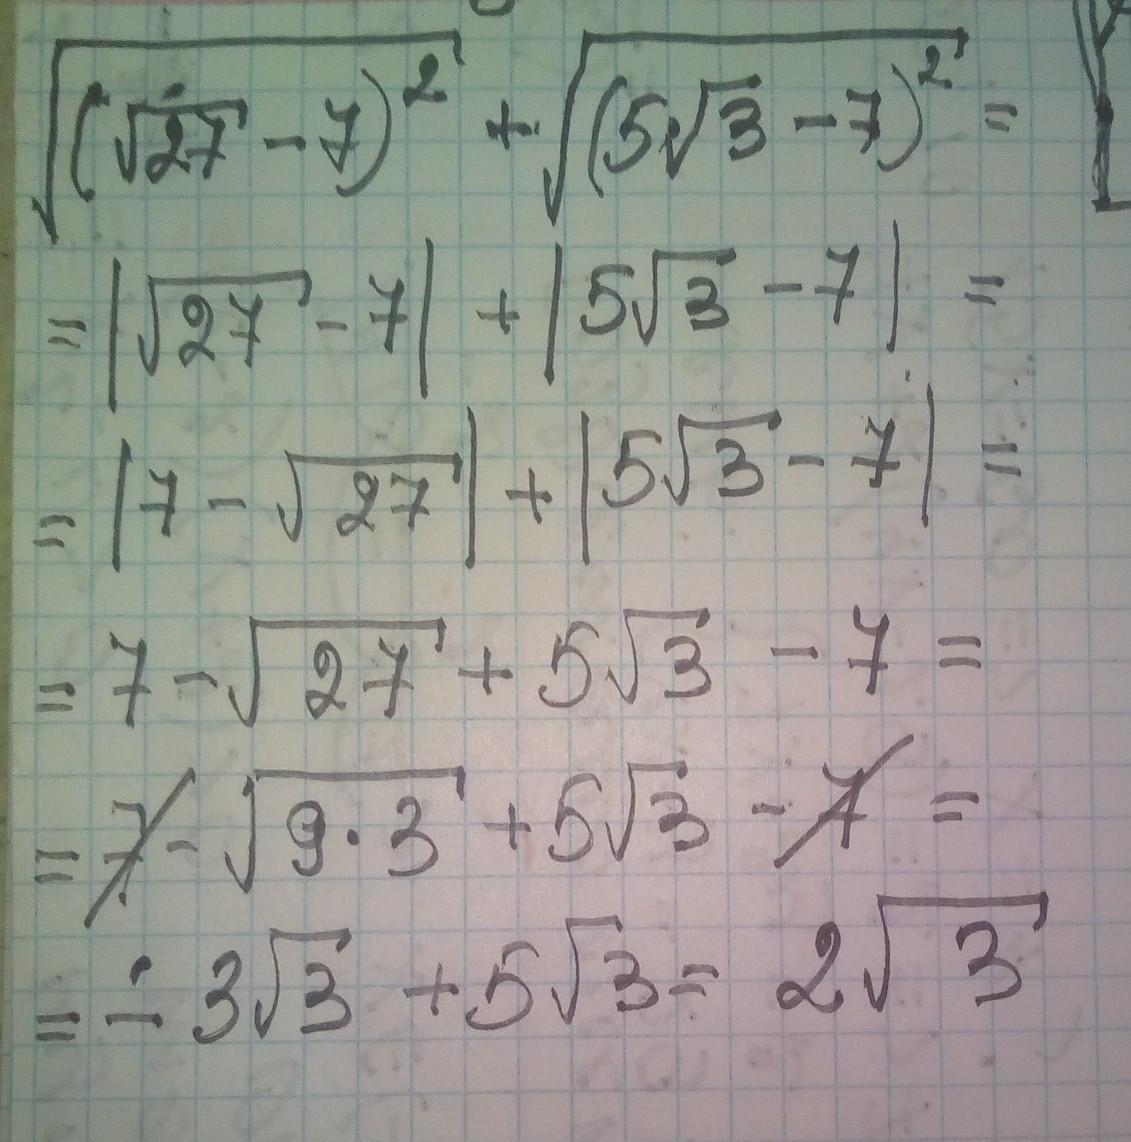 √(√27 - 7)² + √(5√3 - 7)² =
= |√27 - 7| + |5√3 - 7| =
= |7 - √27| + |5√3 - 7| =
= 7 - √27 + 5√3 - 7 =
= 7 - √9·3 + 5√3 - 7 =
= - 3√3 + 5√3 = 2√3